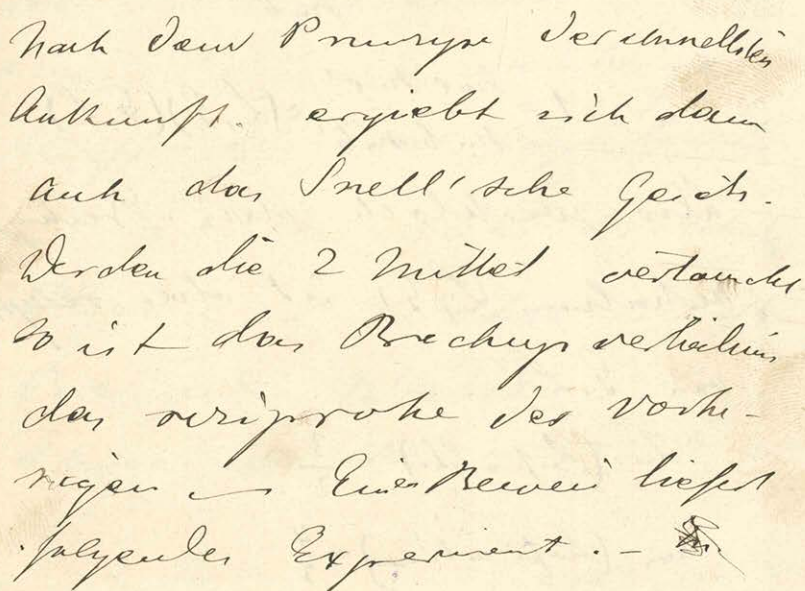 Nach dem Prinzipe der schnellsten
Ankunft. ergiebt sich dann
auch das Snell'sche Gesetz.
Werden die 2 Mittel vertauscht
so ist das Brechungsverhältnis
das reziproke des vorhe-
rigen — Einen Beweis liefert
folgendes Experiment. –